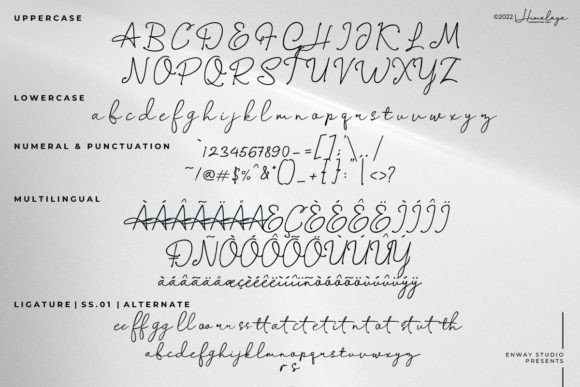 UPPERCASE
©2022 Himalaya
A B C D E F G H I J K L M
N O P Q R S T U V W X Y Z
LOWERCASE
a b c d e f g h i j k l m n o p q r s t u v w x y z
NUMERAL & PUNCTUATION
`1234567890-=[];'\,./
~!@#$%^&*()_+{}:"|<>?
MULTILINGUAL
ÀÁÂÃÄÅÆÇÈÉÊËÌÍÎÏ
ÐÑÒÓÔÕÖÙÚÛÝ
àáâãäåæçèéêëìíîïñòóôõöùúûüýÿ
LIGATURE | SS.01 | ALTERNATE
ee ff gg ll oo rr ss tt at ct et it nt ot st ut th
a b c d e f g h i j k l m n o p q r s t u v w x y z
r s
ENWAY STUDIO
PRESENTS